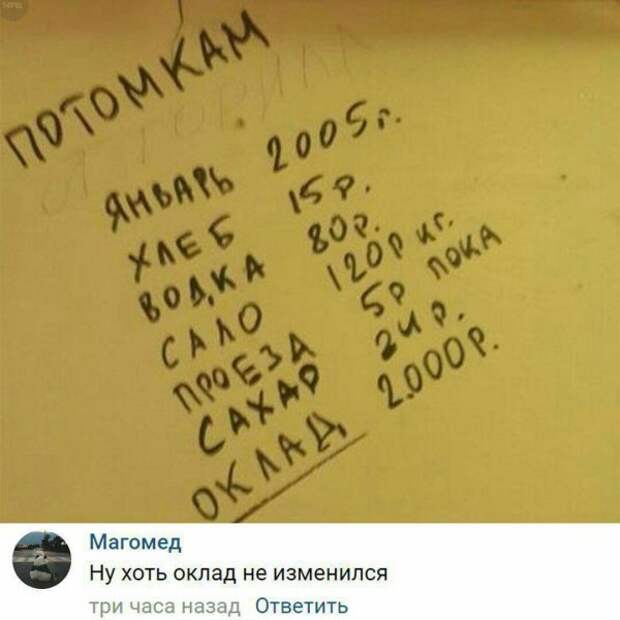 ПОТОМКАМ
ЯНВАРЬ 2005г.
ХЛЕБ 15р.
ВОДКА 80р.
САЛО 120р кг.
ПРОЕЗД 5р ПОКА
САХАР 24р.
ОКЛАД 2.000р.
Магомед
Ну хоть оклад не изменился
три часа назад Ответить